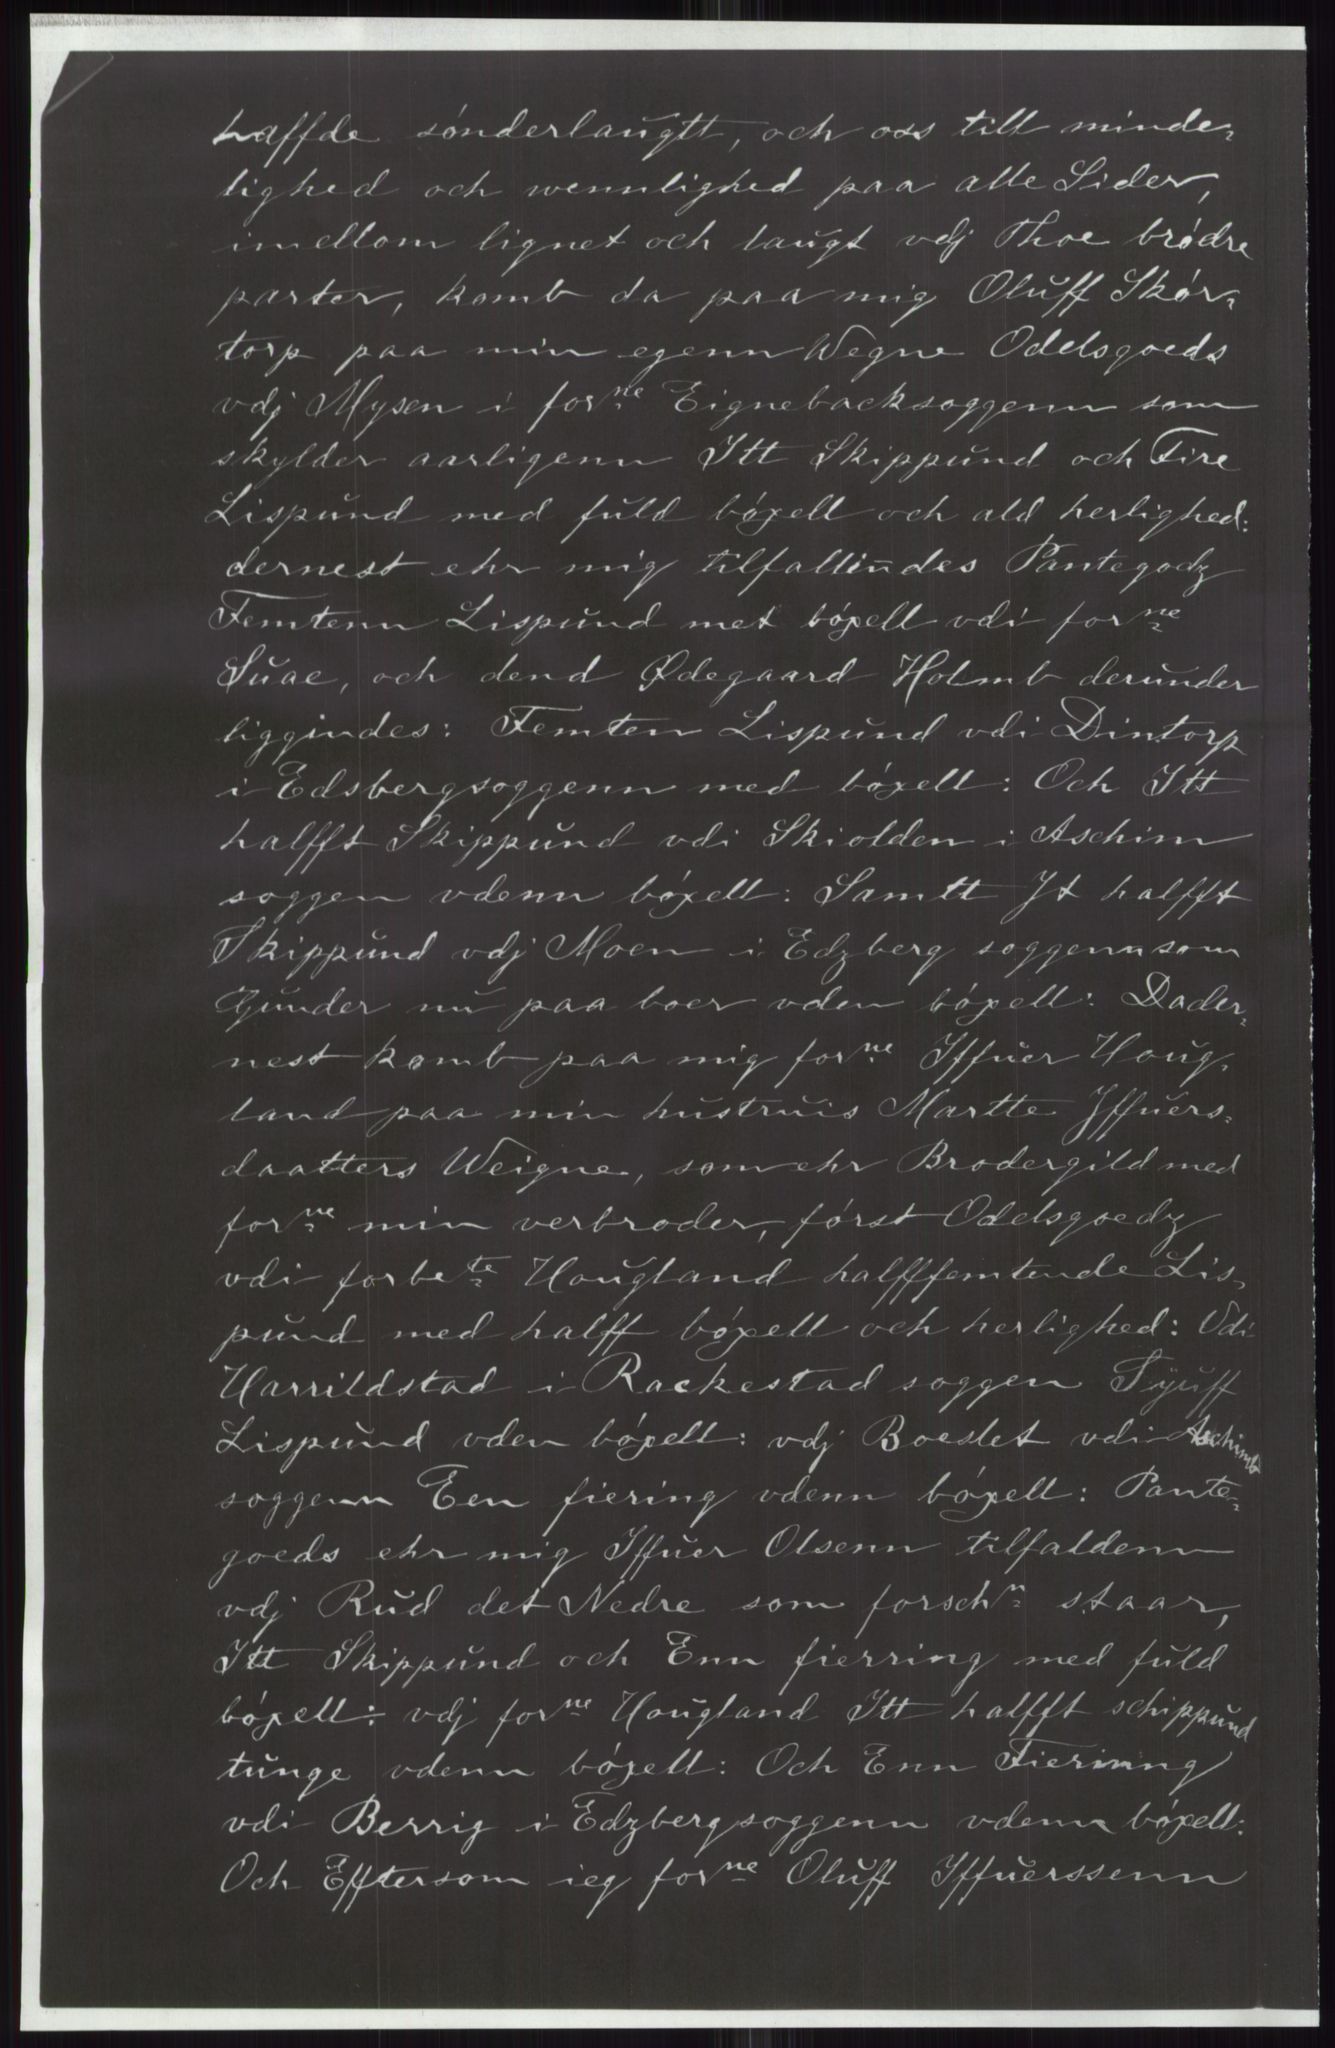 haffde sønderlaugtt, och oss till minde-
lighed och wennlighed paa alle Sider,
imellom lignet och laugt vdj Thoe brødre
parter, komb da paa mig Oluff Skør-
torp paa min egenn Wegne Odelsgoeds
vdj Mysen i forne Eignebacksoggenn som
skylder aarligenn Itt Skippund och Fire
Lispund med fuld bøxell och ald herlighed:
dernest ehr mig tilfallindes Pantegodz
Femtenn Lispund met bøxell vdi forne
Suae, och dend Ødegaard Holmb derunder
liggindes: Femten Lispund vdi Dintorp
i Edsbergsoggenn med bøxell: Och Itt
halfft Skippund vdi Skiolden i Aschim
soggen vdenn bøxell: Samtt It halfft
Skippund vdj Moen i Edzberg soggenn som
Gunder nu paa boer vden bøxell: Dader-
nest komb paa mig forne Iffuer Houg-
land paa min hustruis Martte Iffuers-
daatters Weigne, som ehr Brodergild med
forne min verbroder, først Odelsgoedz
vdi forbete Hougland halfffemtende Lis-
pund med halff bøxell och herlighed: Vdi
Harrildstad i Rackestad soggen Tyuff
Lispund vden bøxell: vdj Boeslet vdi Aschimb
soggenn Een fiering vdenn bøxell: Pante-
goeds ehr mig Iffuer Olsenn tilfaldenn
vdj Rud det Nedre som forschn staar,
Itt Skippund och Enn fierring med fuld
bøxell: vdj forne Hougland Itt halfft schippund
tunge vdenn bøxell: Och Enn Fierinng
vdi Berrig i Edzbergsoggenn vdenn bøxell:
Och Efftersom ieg forne Oluff Iffuerssenn